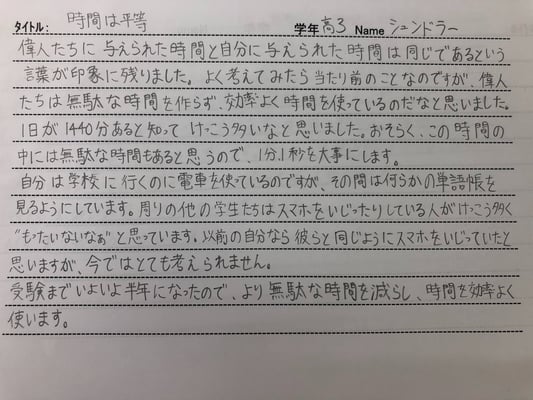 タイトル: 時間は平等 学年 高3 Name シュンドラー
偉人たちに与えられた時間と自分に与えられた時間は同じであるという
言葉が印象に残りました。よく考えてみたら当たり前のことなのですが、偉人
たちは無駄な時間を作らず、効率よく時間を使っているのだなと思いました。
1日が1440分あると知ってけっこう多いなと思いました。おそらく、この時間の
中には無駄な時間もあると思うので、1分、1秒を大事にします。
自分は学校に行くのに電車を使っているのですが、その間は何らかの単語帳を
見るようにしています。周りの他の学生たちはスマホをいじったりしている人がけっこう多く
"もったいないなぁ"と思っています。以前の自分なら彼らと同じようにスマホをいじっていたと
思いますが、今ではとても考えられません。
受験までいよいよ半年になったので、より無駄な時間を減らし、時間を効率よく
使います。